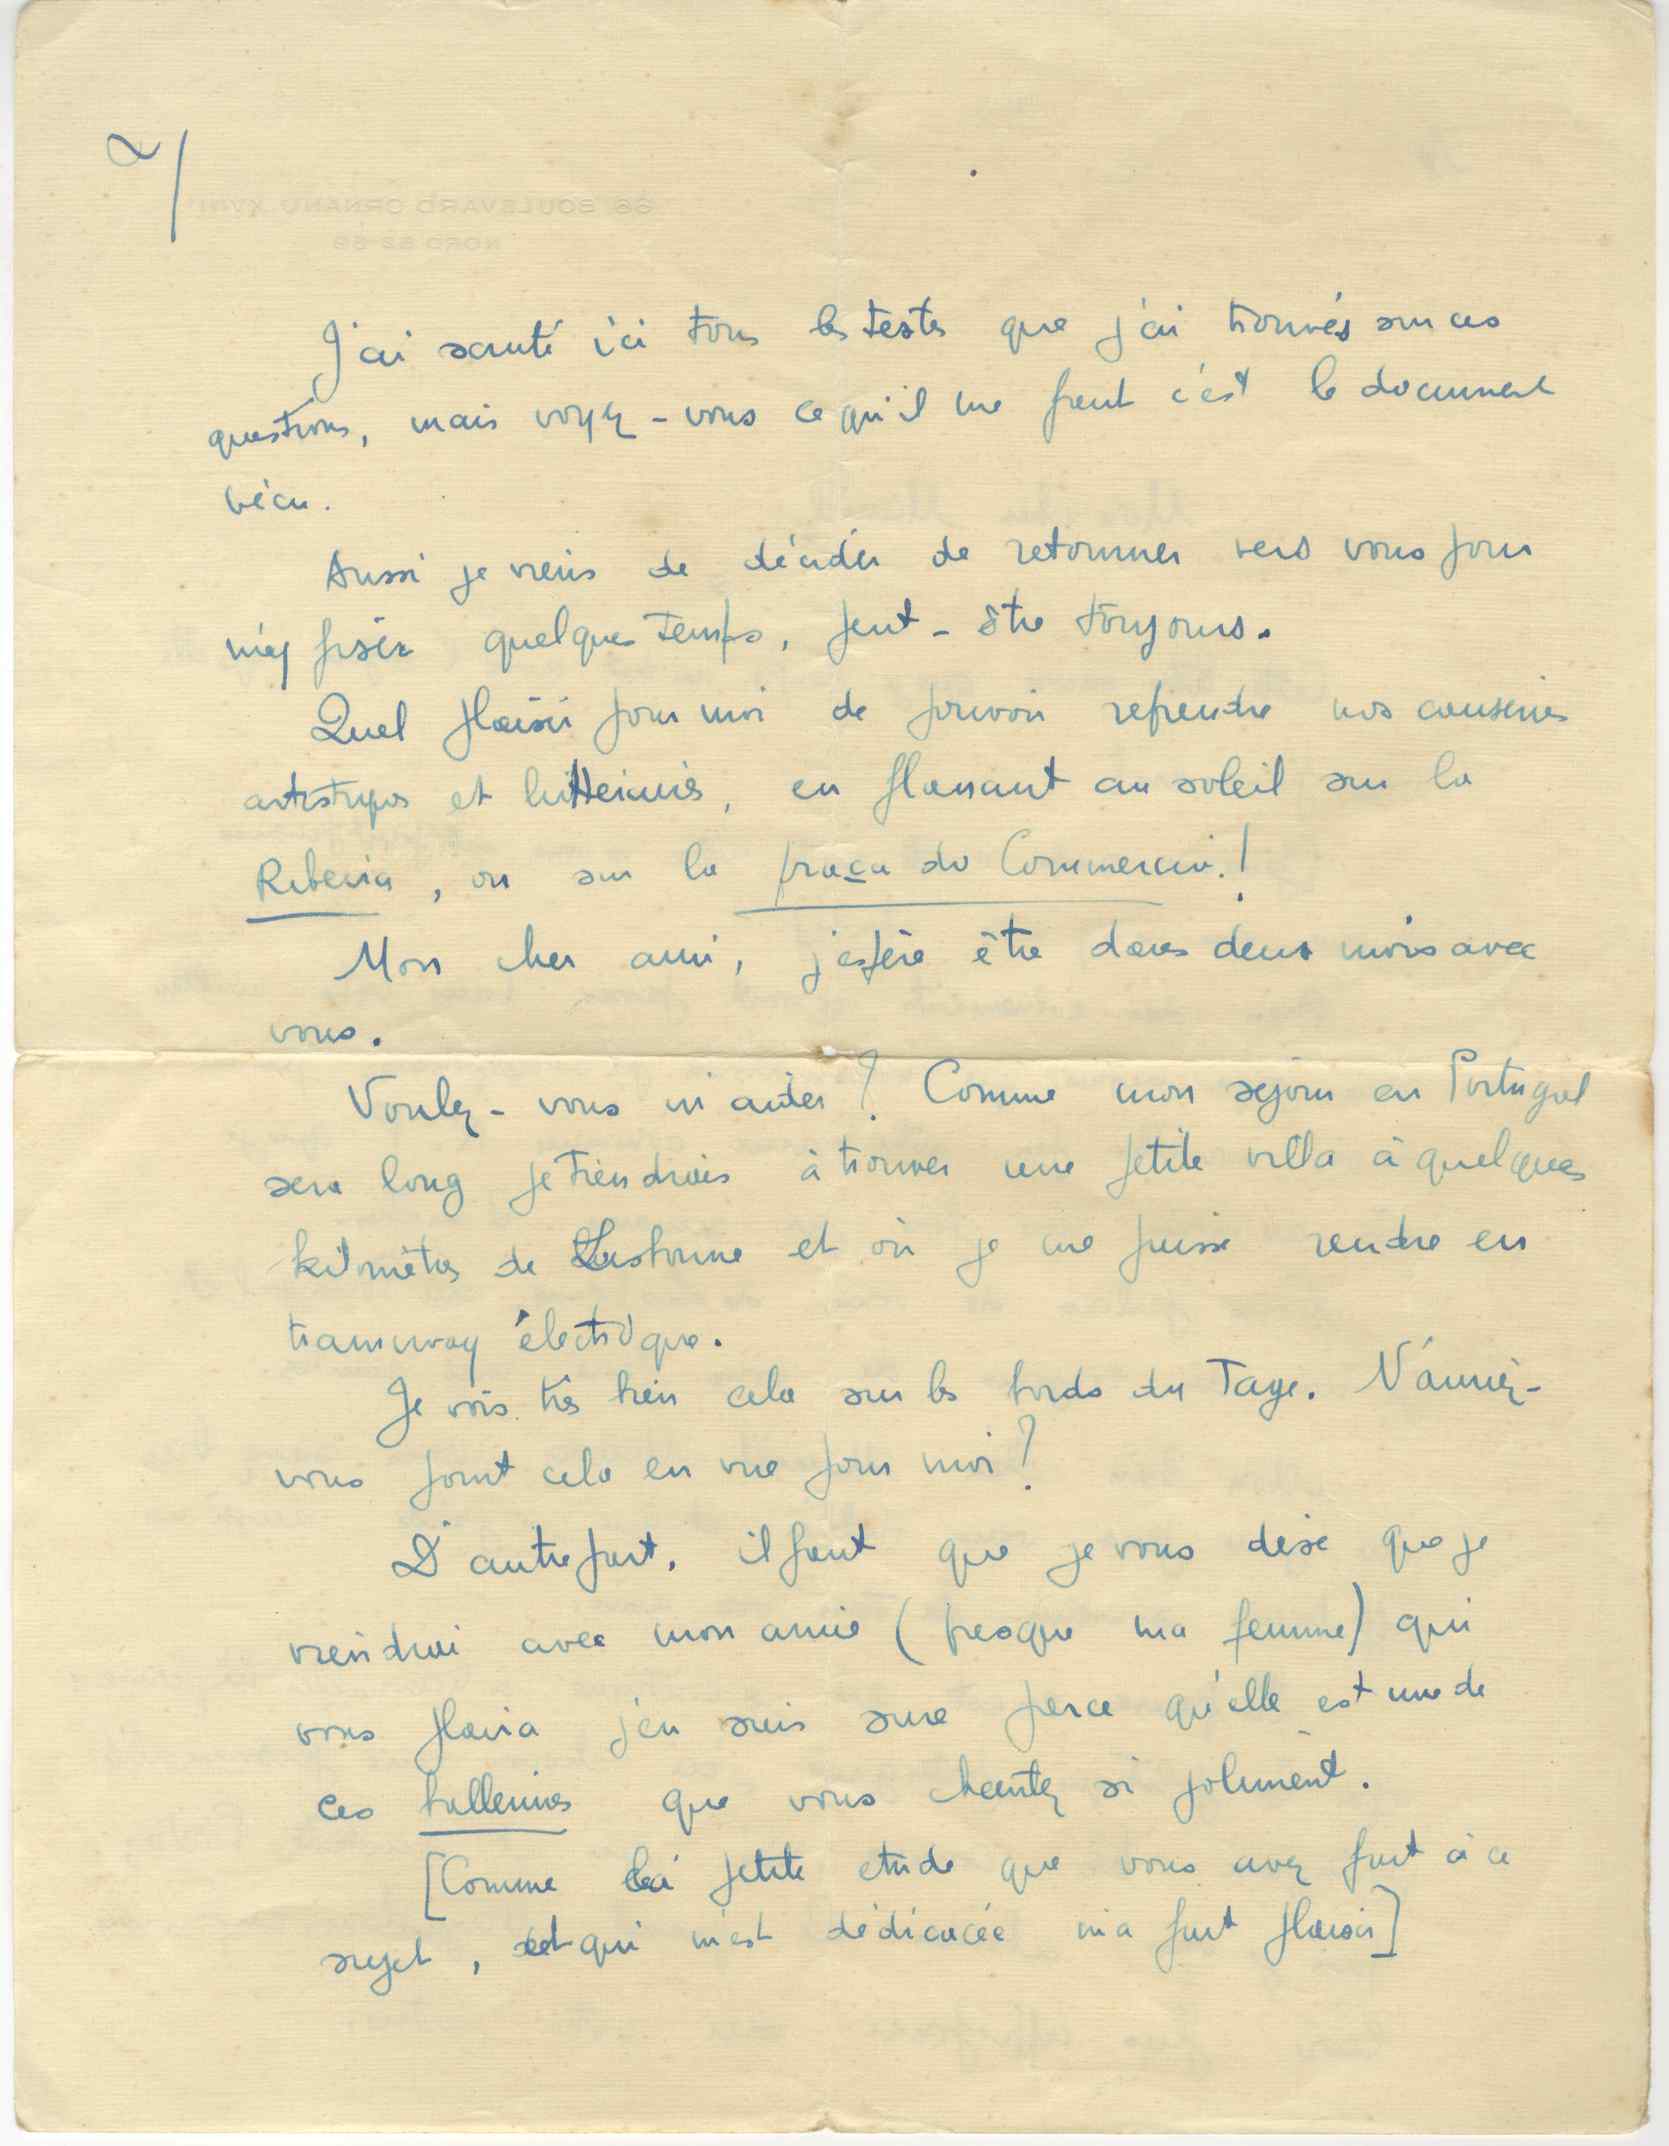 2/
66 BOULEVARD ORNANO XVIII
NORD 52 59
J'ai scruté ici tous les textes que j'ai trouvés sur ces
questions, mais voyez-vous ce qu'il me faut c'est le document
vécu.
Aussi je viens de décider de retourner vers vous pour
m'y fixer quelques temps, peut-être toujours.
Quel plaisir pour moi de pouvoir reprendre nos causeries
artistiques et littéraires, en flanant au soleil sur la
Ribeira, ou sur la praça do Commercio.!
Mon cher ami, j'espère être dans deux mois avec
vous.
Voulez-vous m'aider? Comme mon séjour en Portugal
sera long je tiendrais à trouver une petite villa à quelques
kilomètres de Lisbonne et où je me puisse rendre en
tramway électrique.
Je vois très bien cela sur les bords du Tage. N'auriez-
vous point cela en vue pour moi?
D'autre part, il faut que je vous dise que je
viendrai avec mon amie (presque ma femme) qui
vous plaira j'en suis sure parce qu'elle est une de
ces ballerines que vous chantez si joliment.
[Comme la petite étude que vous avez fait à ce
sujet, et qui m'est dédicacée m'a fait plaisir]